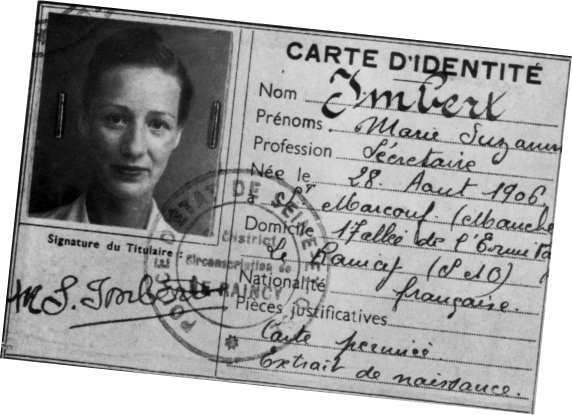 CARTE D'IDENTITÉ
Nom Imbert
Prénoms Marie Suzanne
Profession Sécretaire
Née le 28. Aout 1906.
à St Marcouf. (Manche
Domicile 17 allée de l'Ermita
le Raincy (S&O)
Nationalité française.
Pièces justificatives
Carte permise.
Extrait de naissance.
Signature du Titulaire :
M S. Imbert
ETAT DE SEINE ET
District
Circonscription de
RAINCY